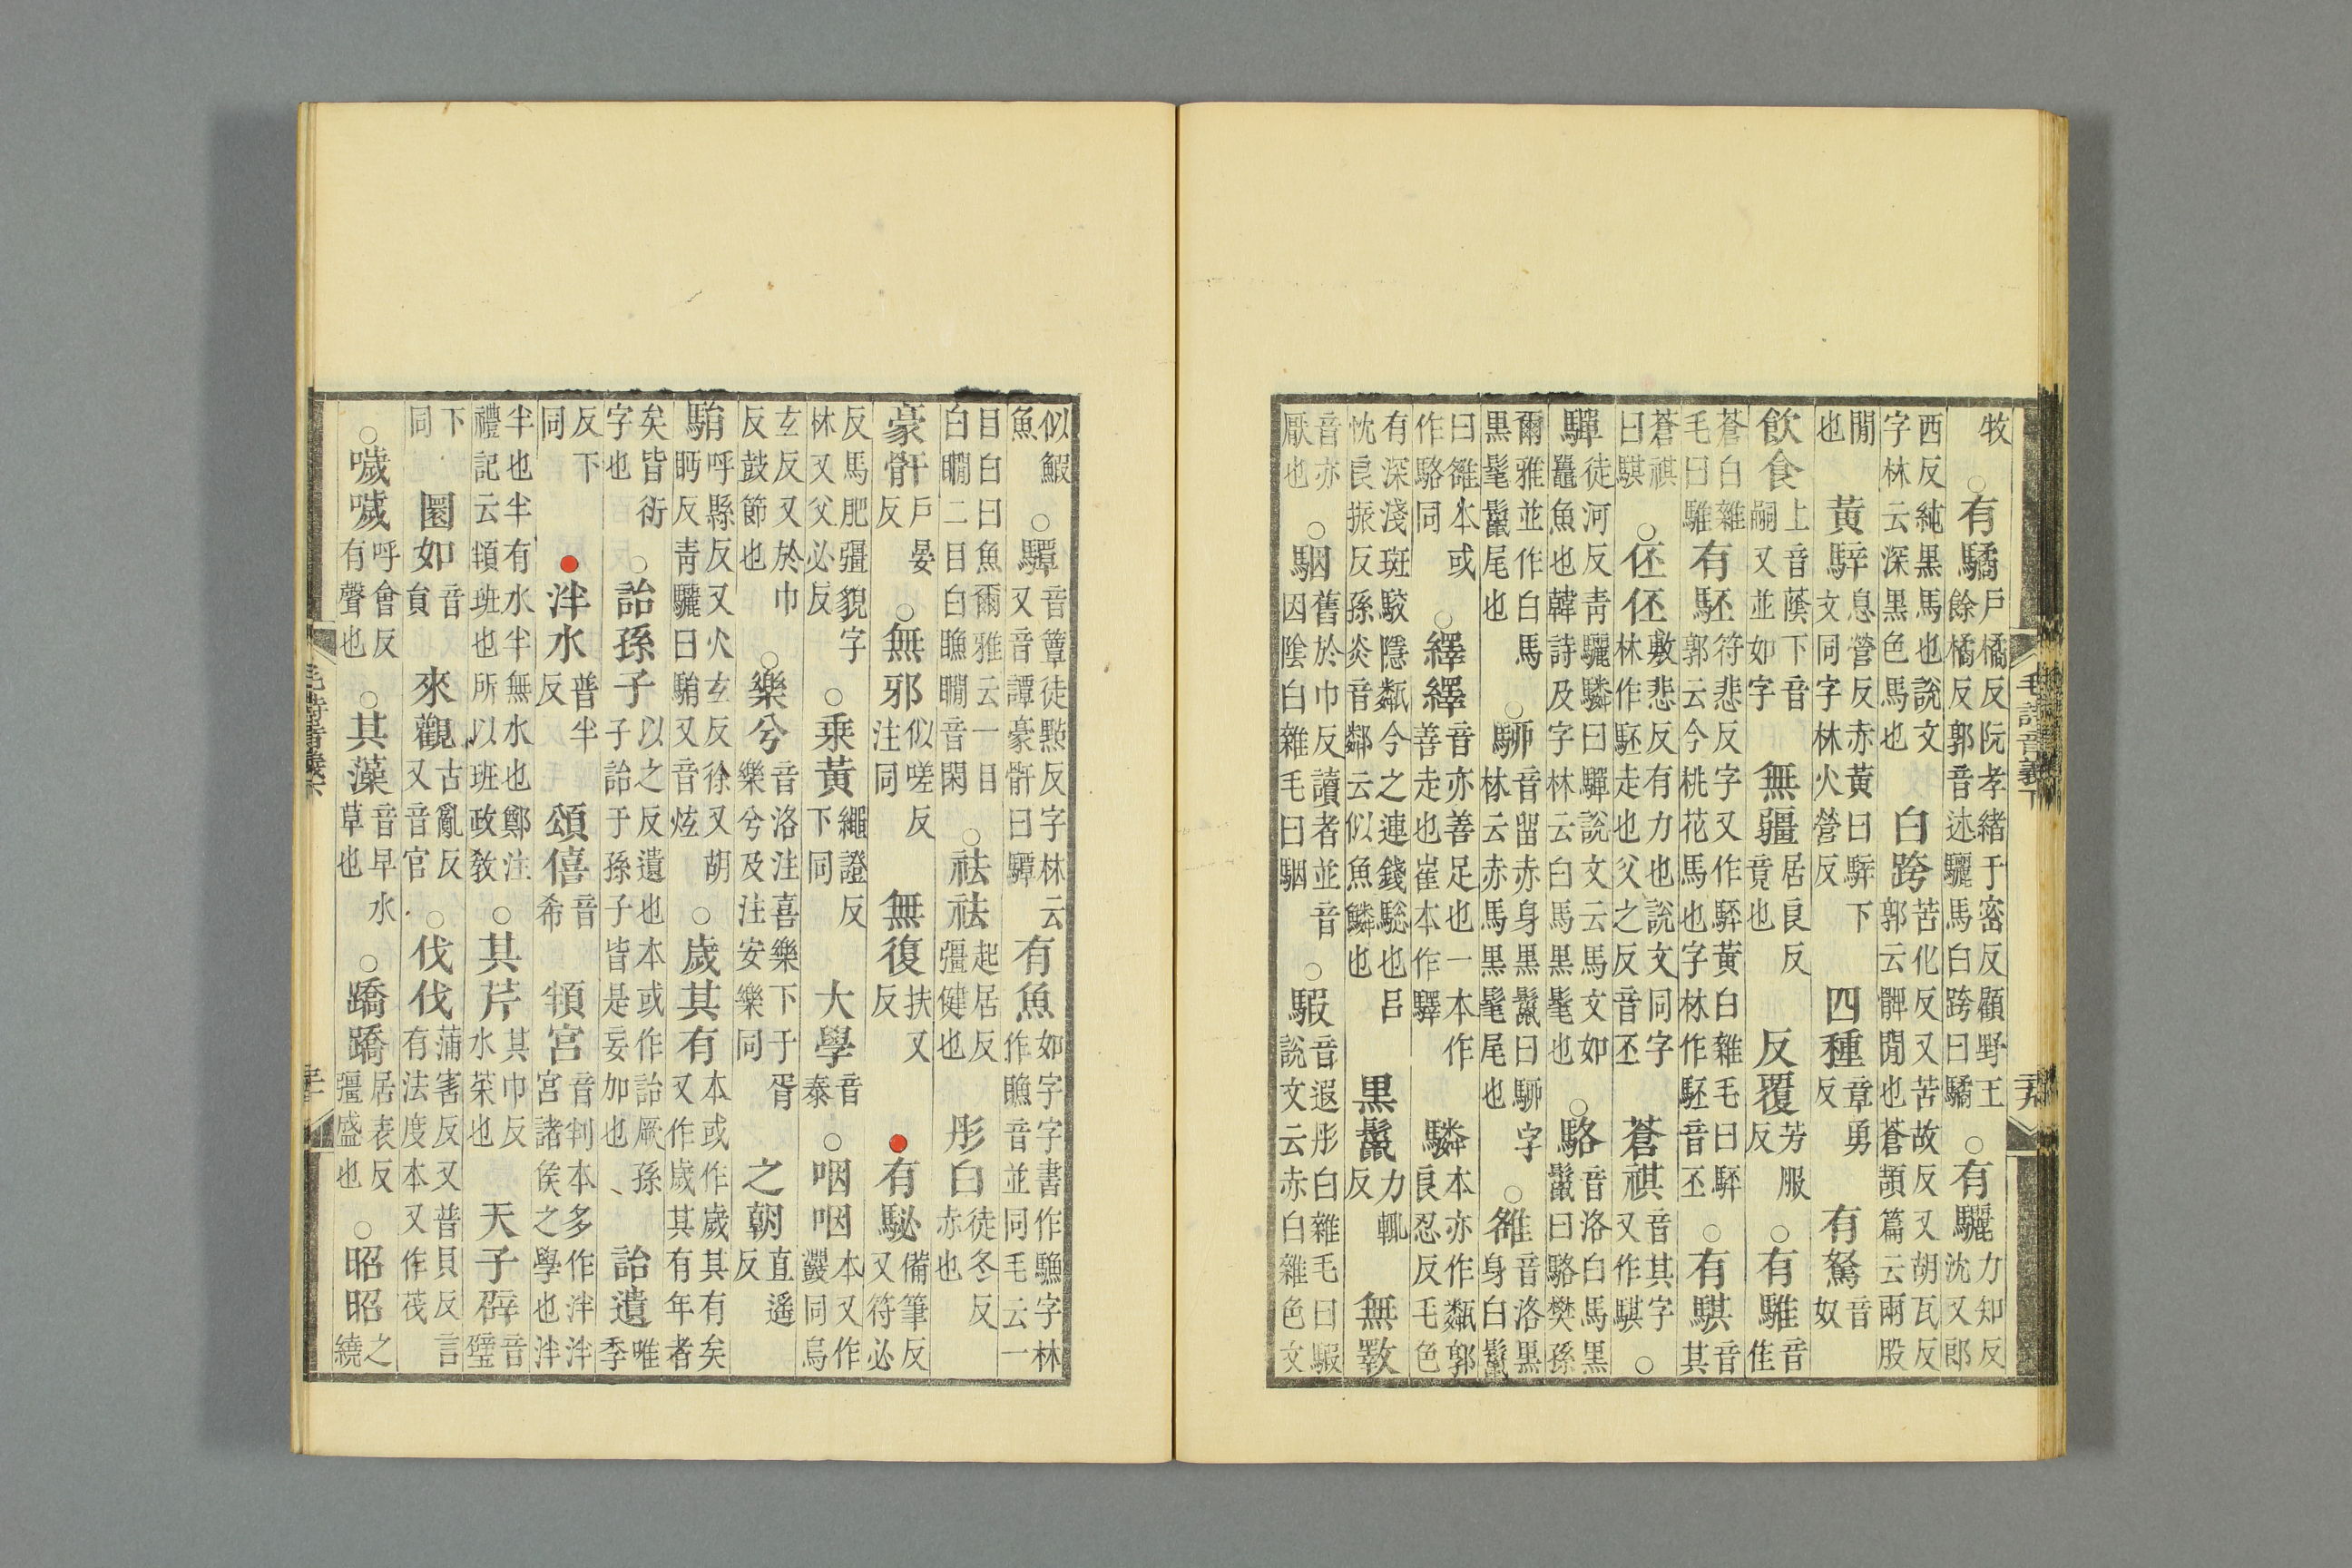 牧○有驈戶橘反阮孝緒于密反顧野王餘橘反郭音述驪馬白跨曰驈○有驪力知反沈又郎
西反純黑馬也說文字林云深黑色馬也白跨苦化反又苦故反又胡瓦反郭云髀閒也蒼頡篇云兩股
閒也黃騂息營反赤黃曰騂下文同字林火營反四種章勇反有駑音奴
飲食上音蔭下音嗣又並如字無疆居良反竟也反覆芳服反○有騅音隹
蒼白雜毛曰騅有駓符悲反字又作駓黃白雜毛曰駓郭云今桃花馬也字林作駓音丕○有騏音其
蒼祺曰騏○伾伾敷悲反有力也說文同字林作駓走也父之反音丕蒼祺音其字又作騏○
驒徒河反青驪驎曰驒說文云馬文如鼉魚也韓詩及字林云白馬黑髦也○駱音洛白馬黑鬣曰駱樊孫
爾雅並作白馬黑髦鬣尾也○駵音留赤身黑鬣曰駵字林云赤馬黑髦尾也○雒音洛黑身白鬣
曰雒本或作駱同○繹繹音亦善足也一本作善走也崔本作驛驎本亦作甐郭良忍反毛色
有深淺斑駮隱甐今之連錢驄也呂忱良振反孫炎音鄰云似魚鱗也黑鬣力輒反無斁
音亦厭也○駰舊於巾反讀者並音因陰白雜毛曰駰○騢音遐彤白雜毛曰騢說文云赤白雜色文
毛詩音義下
似鰕魚○驔音簟徒㸃反字林云又音譚豪骭曰驔有魚如字字書作䱷字林作瞧音並同毛云一
目白曰魚爾雅云一目白瞯二目白瞧瞯音閑○袪袪起居反彊健也彤白徒冬反赤也
豪骭戶晏反○無邪似嗟反注同無復扶又反●有駜備筆反又符必
反馬肥彊貌字林又父必反○乘黃繩證反下同大學音泰○咽咽本又作鼝同烏
玄反又於巾反鼓節也○樂兮音洛注喜樂下于胥樂兮及注安樂同之朝直遙反
駽呼縣反又火玄反徐又胡眄反青驪曰駽又音炫○歲其有本或作歲其有矣又作歲其有年者
矣皆衍字也○詒孫子以之反遺也本或作詒厥孫子詒于孫子皆是妄加也詒遺唯季
反下同●泮水普半反頌僖音希頖宮音判本多作泮泮宮諸侯之學也泮
半也半有水半無水也鄭注禮記云頖班也所以班政教○其芹其巾反水菜也天子辟音璧
下同圜如音員來觀古亂反又音官○伐伐蒲害反又普貝反言有法度本又作茷
○噦噦呼會反有聲也○其藻音早水草也○蹻蹻居表反彊盛也○昭昭之繞